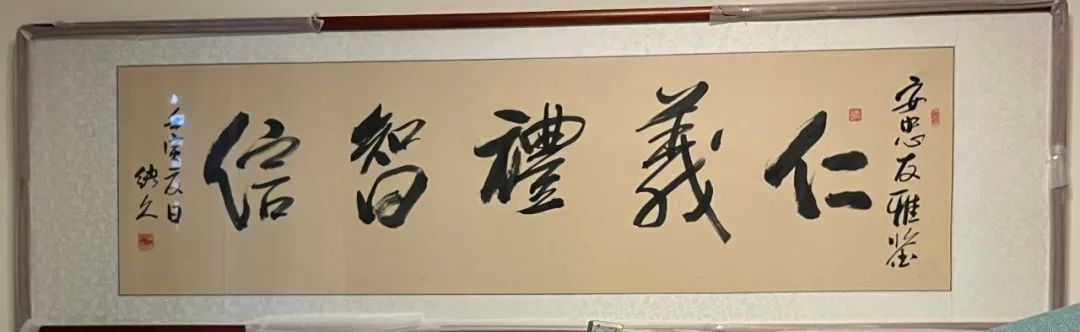 安忠友雅鉴
仁義禮智信
壬寅夏日